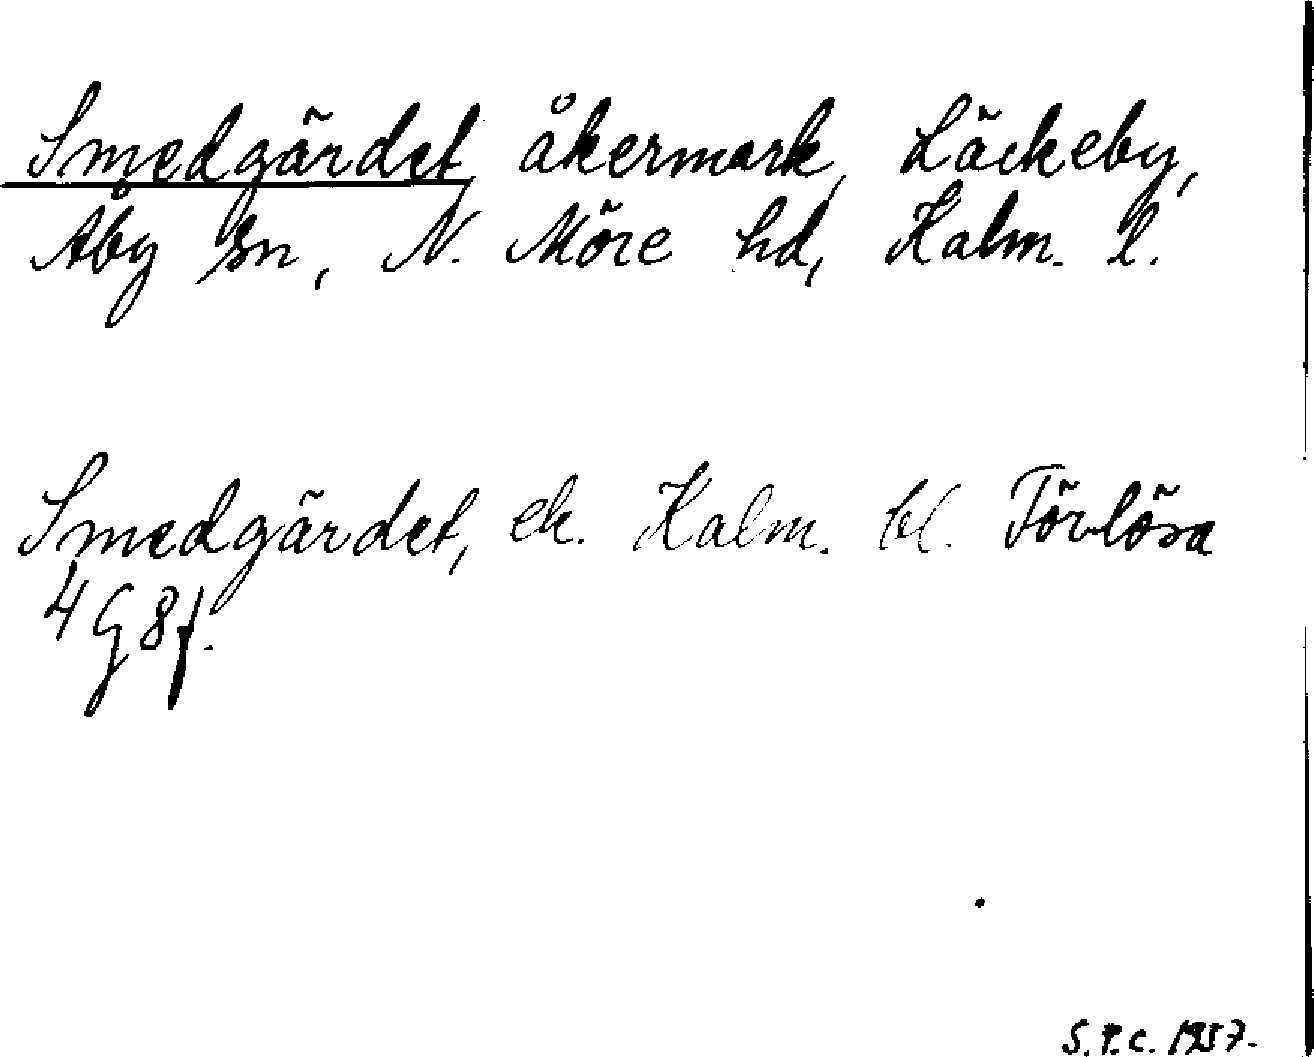 Smedgärdet, åkermark, Läckeby,
Åby sn, N. Möre hd, Kalm. l.
Smedgärdet, ek. Kalm. bl. Förlösa
4 G 8 f.
S.P.C. 1957.